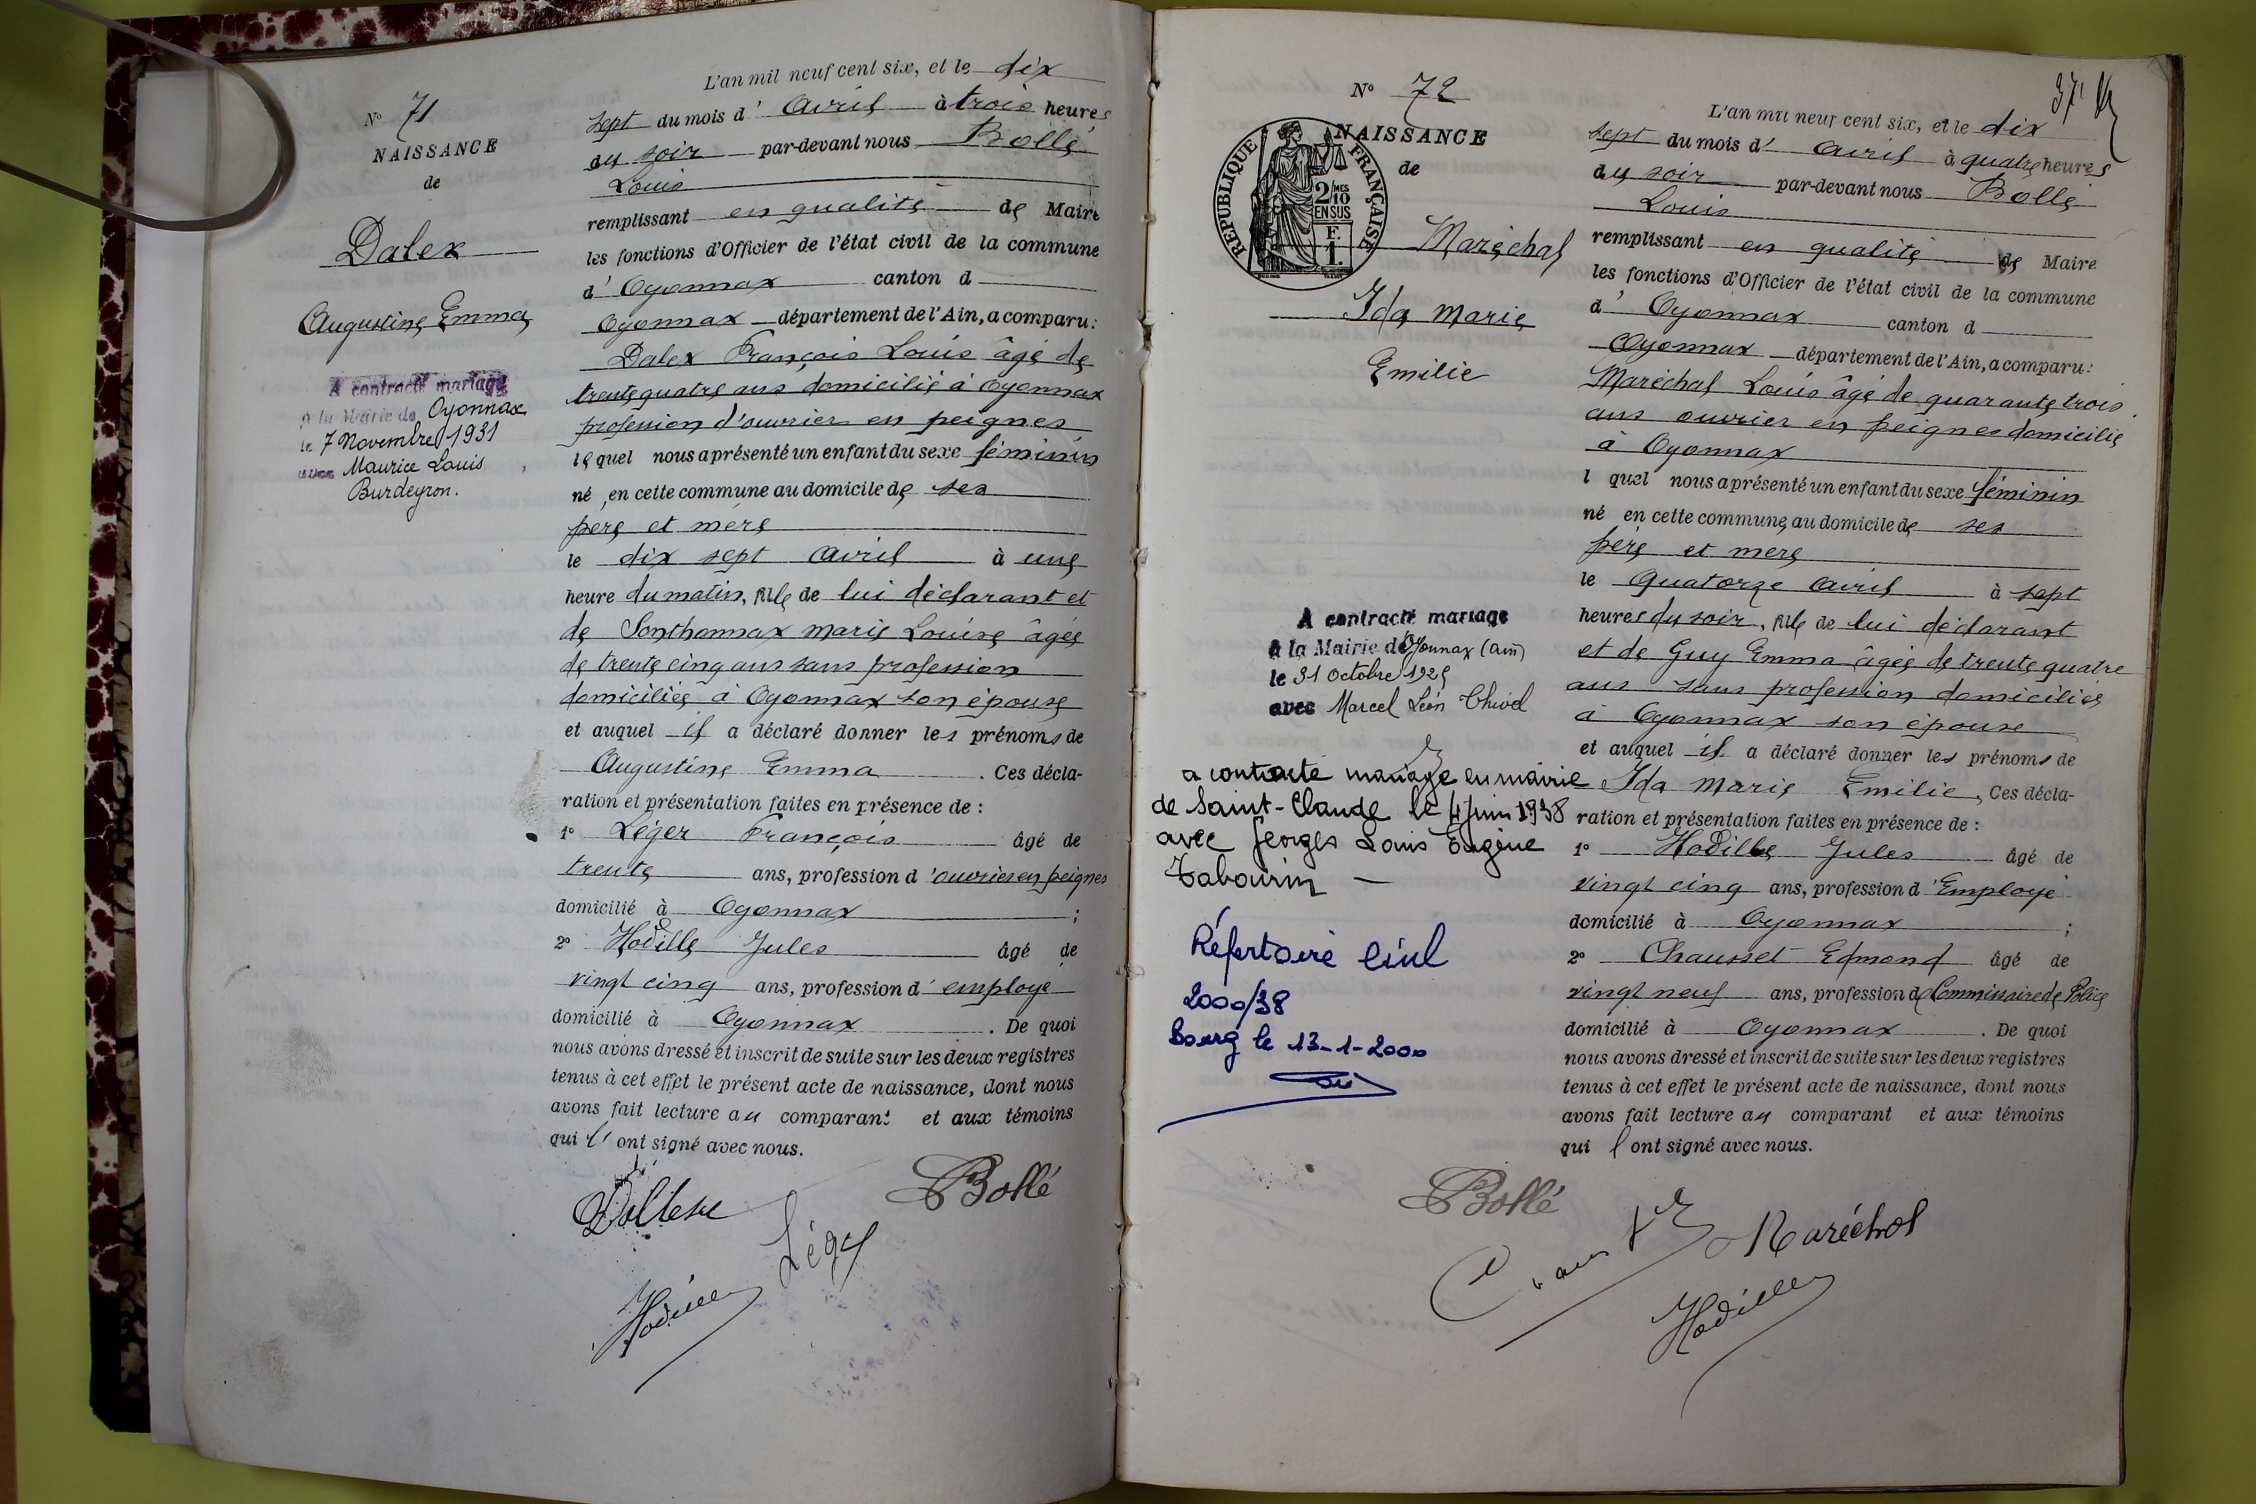 N° 71
NAISSANCE
de
Dalex
Augustine Emma
A contracté mariage
à la Mairie de Oyonnax
le 7 Novembre 1931
avec Maurice Louis
Burdeyron.
L'an mil neuf cent six, et le dix
sept du mois d' Avril à trois heures
du soir par-devant nous Bollé
Louis
remplissant en qualité de Maire
les fonctions d'Officier de l'état civil de la commune
d' Oyonnax canton d
Oyonnax département de l'Ain, a comparu:
Dalex François Louis âgé de
trente quatre ans domicilié à Oyonnax
profession d'ouvrier en peignes
lequel nous a présenté un enfant du sexe féminin
né, en cette commune au domicile de ses
père et mère
le dix sept Avril à une
heure du matin, fille de lui déclarant et
de Sonthonnax Marie Louise âgée
de trente cinq ans sans profession
domiciliée à Oyonnax son épouse
et auquel il a déclaré donner les prénoms de
Augustine Emma. Ces décla-
ration et présentation faites en présence de:
1° Léger François âgé de
trente ans, profession d'ouvrier en peignes
domicilié à Oyonnax;
2° Hodille Jules âgé de
vingt cinq ans, profession d'employé
domicilié à Oyonnax. De quoi
nous avons dressé et inscrit de suite sur les deux registres
tenus à cet effet le présent acte de naissance, dont nous
avons fait lecture au comparant et aux témoins
qui l'ont signé avec nous.
Bollé
Léger
Hodille
37
N° 72
NAISSANCE
de
REPUBLIQUE FRANÇAISE
2/10 MES
EN SUS
F.
1.
Maréchal
Ida Marie
Emilie
A contracté mariage
à la Mairie d'Oyonnax (Ain)
le 31 octobre 1925
avec Marcel Léon
a contracté mariage en mairie
de Saint-Claude le 4 Juin 1938
avec Georges Louis Eugène
Tabourin
Répertoire Civil
2000/38
Bourg le 13-1-2000
L'an mil neuf cent six, et le dix
sept du mois d' Avril à quatre heures
du soir par-devant nous Bollé
Louis
remplissant en qualité de Maire
les fonctions d'Officier de l'état civil de la commune
d' Oyonnax canton d
Oyonnax département de l'Ain, a comparu:
Maréchal Louis âgé de quarante trois
ans ouvrier en peignes domicilié
à Oyonnax
l quel nous a présenté un enfant du sexe féminin
né en cette commune, au domicile de ses
père et mère
le Quatorze Avril à sept
heures du soir, fille de lui déclarant
et de Guy Emma âgée de trente quatre
ans sans profession domiciliée
à Oyonnax son épouse
et auquel il a déclaré donner les prénoms de
Ida Marie Emilie, Ces décla-
ration et présentation faites en présence de:
1° Hodille Jules âgé de
vingt cinq ans, profession d'Employé
domicilié à Oyonnax;
2° Chausset Edmond âgé de
vingt neuf ans, profession de Commissaire de Police
domicilié à Oyonnax. De quoi
nous avons dressé et inscrit de suite sur les deux registres
tenus à cet effet le présent acte de naissance, dont nous
avons fait lecture au comparant et aux témoins
qui l ont signé avec nous.
Bollé
Maréchal
Hodille